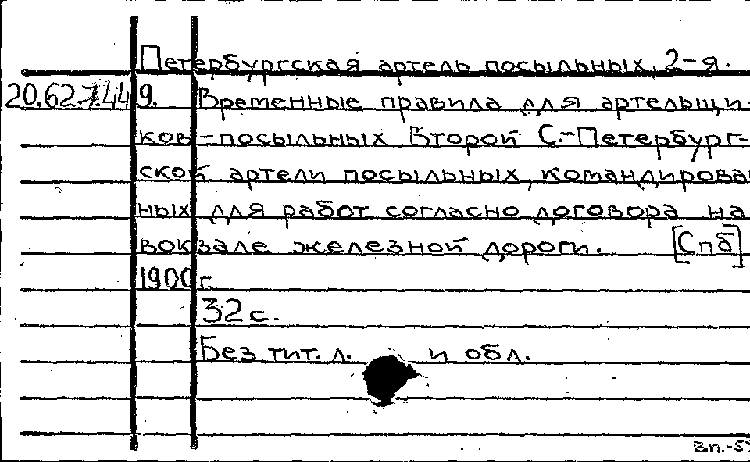 Петербургская артель посыльных, 2-я.
20.62.7.449. Временные правила для артельщи-
ков-посыльных Второй С.-Петербург-
ской артели посыльных, командирован
ных для работ согласно договора на
вокзале железной дороги. [Спб]
1900 г.
32 с.
Без тит. л. и обл.
Зп.-5